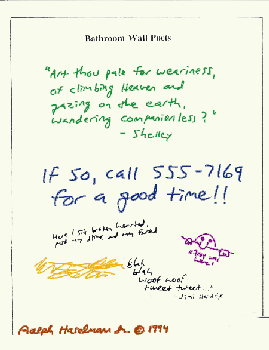 Bathroom Wall Poets
"Art thou pale for weariness,
of climbing Heaven and
gazing on the earth,
wandering companionless?"
- Shelley
If so, call 555-7169
for a good time!!
Here I sit broken hearted,
blah
blah
woof woof
tweet tweet..!
Jimi Hendrix
Ralph Hardman Jr. © 1994